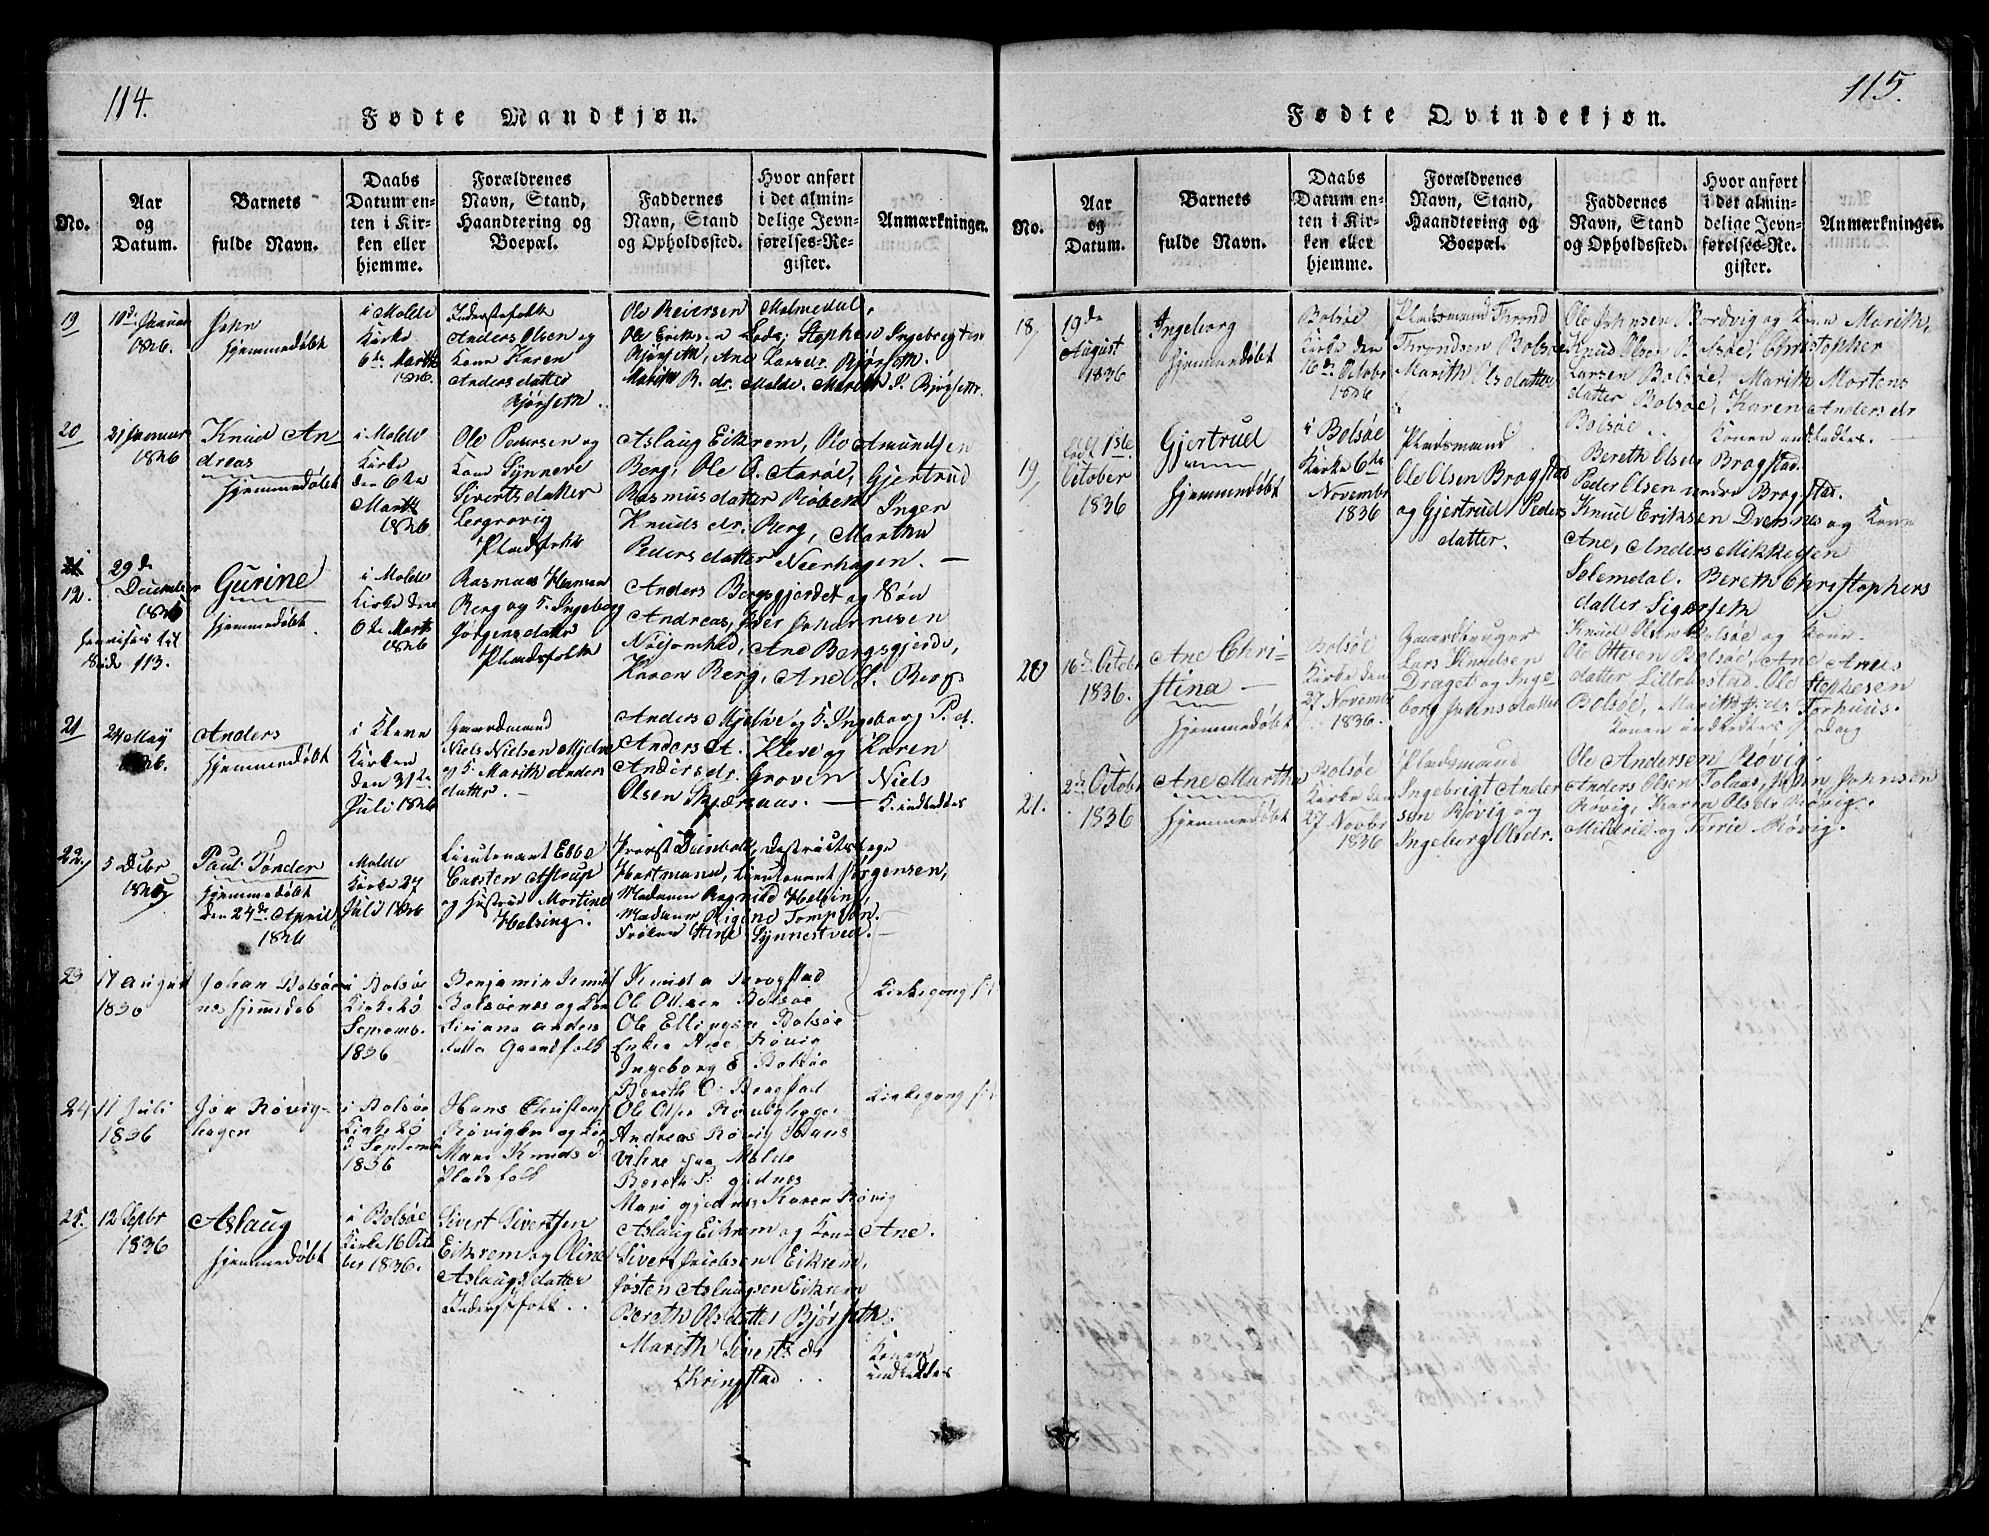 114.
Fødte Mandkjøn.
No.
Aar
og
Datum.
Barnets
fulde Navn.
Daabs
Datum en-
ten i Kir-
ken eller
hjemme.
Forældrenes
Navn, Stand,
Haandtering og
Boepæl.
Faddernes
Navn, Stand
og Opholdssted.
Hvor anført
i det almin-
delige Jevn-
førelses-Re-
gister.
Anmærkninger.
19
1836.
John
hjemmedøbt
i Molde
Kirke
6te Marts
1836.
Inderstefolk
Anders Olsen og
Kone Karen
Andersdatter
Bjørseth
Ole Reiersen Malmedal,
Ole Eriksen
Bjørseth, Ane Larsdr. Bjørseth
Marith B. dr. Molde. Marith P. Bjørsettr.
20
31 Januar
1836
Knud An
dreas
hjemmedøbt
i Molde
Kirke
den 6te
Marts
1836
Ole Pedersen og
Kone Synneve
Sivertsdatter
Lergrovig
Pladsfolk
Aslaug Eikrem, Ole Amundsen
Berg, Ole O. Aarøe, Gjertrud
Rasmusdatter Røbek Inger
Knudsdr. Berg, Martha
Pedersdatter Neerhagen. —
12.
29de
December
Gurine
hjemmedøbt
henvises til
Side 113.
i Molde
Kirke den
6te Marts
1836
Rasmus Hansen
Berg og K. Ingeborg
Jørgensdatter
Pladsfolk
Anders Bergsgjerdet og Søn
Andreas, Peder Johannesen
Nøisomhed, Ane Bergsgjerde,
Karen Berg, Ane L. Berg
21
24 May
1836.
Anders
hjemmedøbt
i Kleve
Kirken
den 31te
Juli 1836
Gaardmand
Niels Nielsen Mjelve
og K. Marith Anders
datter. —
Anders Mjelve og K. Ingeborg P. d.
Anders A. Kleve og Karen
Andersdr. Groven Niels
Olsen Skjærsaas. — K. indleddes
22
5 Decbr
Paul Tønder
hjemmedøbt
den 24de April
1836
Molde
Kirke 27
Juli 1836
Lieutenant Ebbe
Carsten Astrup
og Hustrue Mortine
Helsing.
Provst Dunbold, Destrictslæge
Hartmann, Lieutenant Jørgensen,
Madame Ragnild Helsing,
Madame
Frøken Stine Synnestved. —
23
17 August
1836
Johan Bolsøe
nes hjemdøb
i Bolsøe
Kirke
Septemb.
1836
Benjamin Knuds
Bolsøenes og Kone
Anders
datter Gaardfolk
Knud Brogstad
Ole Ottsen Bolsøe
Ole Ellingsen Bolsøe
Enken Ane Røvig
Ingeborg E Bolsøe
Bereth O. Brogstad
Kirkegong
24
11 Juli
1836
Jon Røvig-
hagen
i Bolsøe
Kirke
Septemb
1836
Hans Christens
Røvighn og Kone
Mari Knuds d.
Pladsfolk
Ole Olsen
Andreas Røvig Hans
paa Molde
Bereth P. gidnes
Mari gjednes Karen Røvig
Kirkegong
25.
12 Septbr
1836
Aslaug
hjemmedøbt
i Bolsøe
Kirke 16 Octo
ber 1836.
Sivert Sivertsen
Eikrem og Oline
Aslaugsdatter
Inderstfolk
Aslaug Eikrem og Kone Ane.
Sivert Jacobsen Eikrem,
Jøsten Aslaugsen Eikrem
Bereth Olsdatter Bjørseth,
Marith Sivertsdr
Kringstad
Konen
indleddes
115.
Fødte Qvindekjøn.
No.
Aar
og
Datum.
Barnets
fulde Navn.
Daabs
Datum en-
ten i Kir-
ken eller
hjemme.
Forældrenes
Navn, Stand,
Haandtering og
Boepæl.
Faddernes
Navn, Stand
og Opholdssted.
Hvor anført
i det almin-
delige Jevn-
førelses-Re-
gister.
Anmærkninger.
18
19de
August
1836
Ingeborg
hjemmedøbt
Bolsøe
Kirke den
16de Octobr
1836
Pladsmand Thrond
Throndsen Bolsøe
Marith Olsdatter
Ole Johnsen Bordvig og Kone Marith,
Knud Olsen Bolsøe, Christopher
Larsen Bolsøe, Marith Mortens
datter Bolsøe, Karen Andersdr
Bolsøe. Konen indleddes. —
19
1ste
October
1836
Gjertrud
hjemmedøbt
i Bolsøe
Kirke 6te
Novembr
1836
Pladsmand
Ole Olsen Brogstad
og Gjertrud Peders
datter.
Bereth Olsdr Brogstad.
Peder Olsen nedre Brogstad.
Knud Eriksen Dversnes og Kone
Ane, Anders Mikkelsen
Solemdal. Bereth Christophers
datter Sigerseth
20
16de Octobr
1836.
Ane Chri-
stina —
hjemmedøbt
Bolsøe
Kirke den
27 Novembr
1836.
Gaardbruger
Lars Knudsen
Draget og Inge
borg Johnsdatter
Knud Olsen Bolsøe og Kone
Ole Ottesen Bolsøe, Ane Arnts
datter Lillebostad. Ole Stephesen
Bolsøe, Marith Torhuus.
Konen indleddes s. Dag
21.
2de Octobr
1836
Ane Martha
hjemmedøbt
Bolsøe
Kirke den
27 Novbr
1836
Pladsmand
Ingebrigt Ander
sen Røvig og
Ingeborg Olsdr.
Ole Andersen Røvig,
Anders Olsen Tolaas, John Johnsen
Røvig, Karen Olsdr Røvig,
Mildrid og Torrie Røvig.